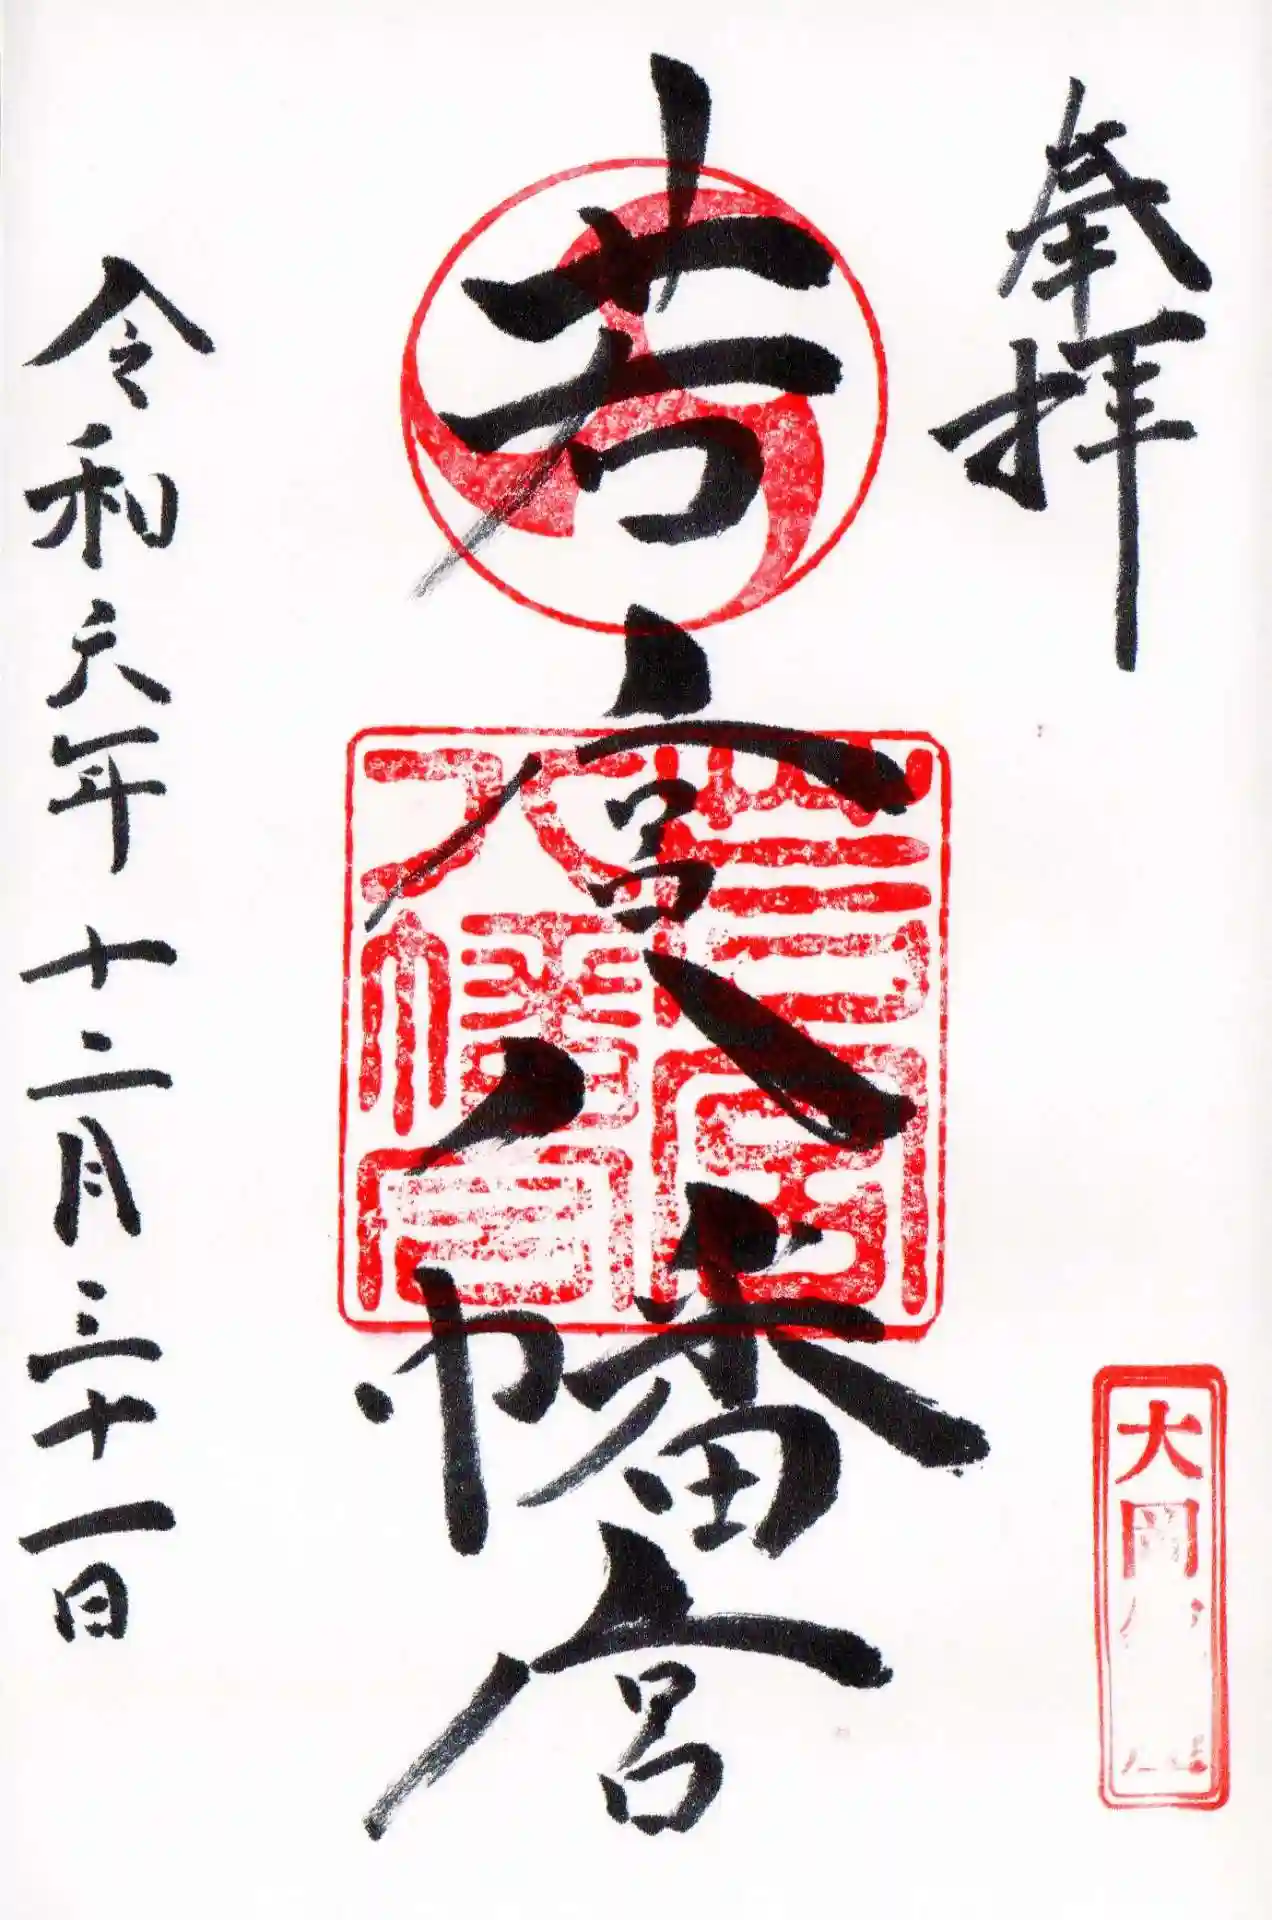 奉拝
大岡
若宮八幡宮
若宮八幡宮
令和六年十二月三十一日